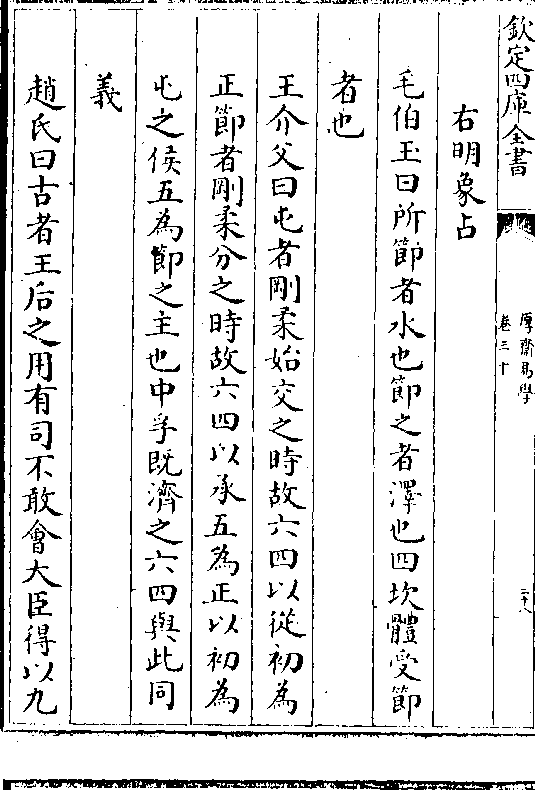 欽定四庫全書
厚齋易學
卷三十
二十八
右明象占
毛伯玉曰所節者水也節之者澤也四坎體受節
者也
王介父曰屯者剛柔始交之時故六四以從初為
正節者剛柔分之時故六四以承五為正以初為
屯之侯五為節之主也中孚既濟之六四與此同
義
趙氏曰古者王后之用有司不敢會大臣得以九